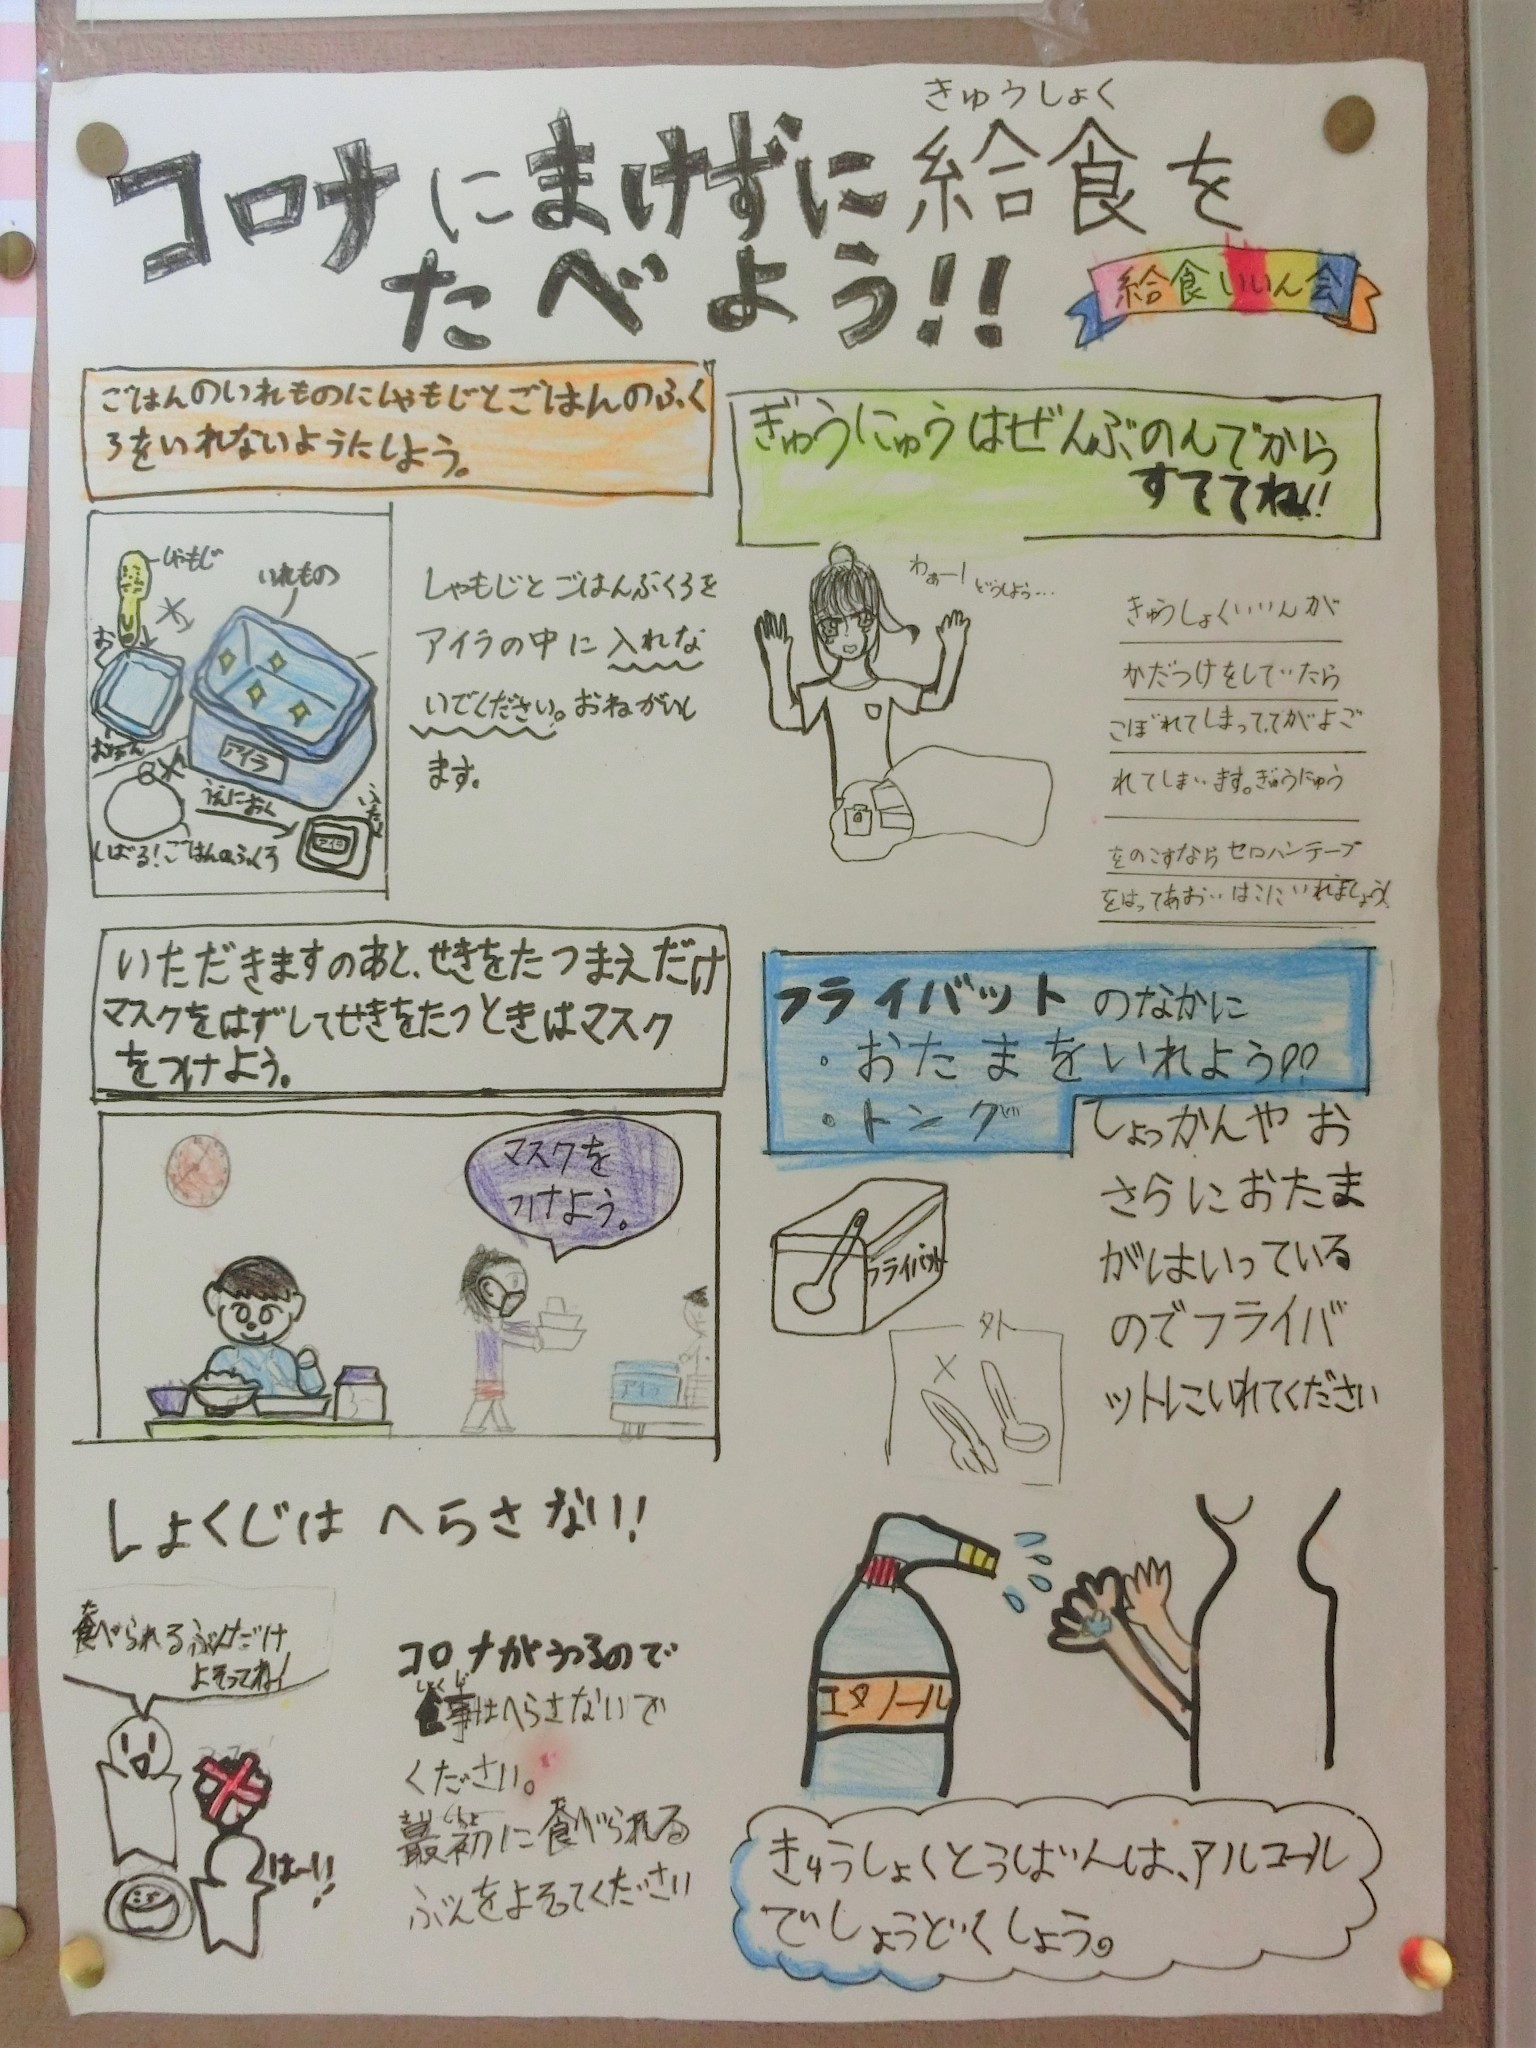 きゅうしょく
コロナにまけずに給食を
たべよう!!
給食いいん会
ごはんのいれものにしゃもじとごはんのふく
ろをいれないようにしよう。
しゃもじ
いれもの
おく
アイラ
うえにおく
ふた
アイラ
しばる!ごはんのふくろ
しゃもじとごはんぶくろを
アイラの中に入れな
いでください。おねがいし
ます。
ぎゅうにゅうはぜんぶのんでから
すててね!!
わぁー!
どうしよう…
きゅうしょくいいんが
かだつけをしていたら
こぼれてしまっててがよご
れてしまいます。ぎゅうにゅう
をのこすならセロハンテープ
をはってあおいはこにいれましょう!
いただきますのあと、せきをたつまえだけ
マスクをはずしてせきをたつときはマスク
をつけよう。
マスクを
つけよう。
アイラ
フライバットのなかに
・おたまをいれよう!!
・トング
しょっかんやお
さらにおたま
がはいっている
のでフライバ
ットにいれてください
フライバット
外
しょくじはへらさない!
食べられるぶんだけ
よそってね!
はーい!
コロナがうつるので
食事はへらさないで
ください。
最初に食べられる
ぶんをよそってください
エタノール
きゅうしょくとうばんは、アルコール
でしょうどくしよう。